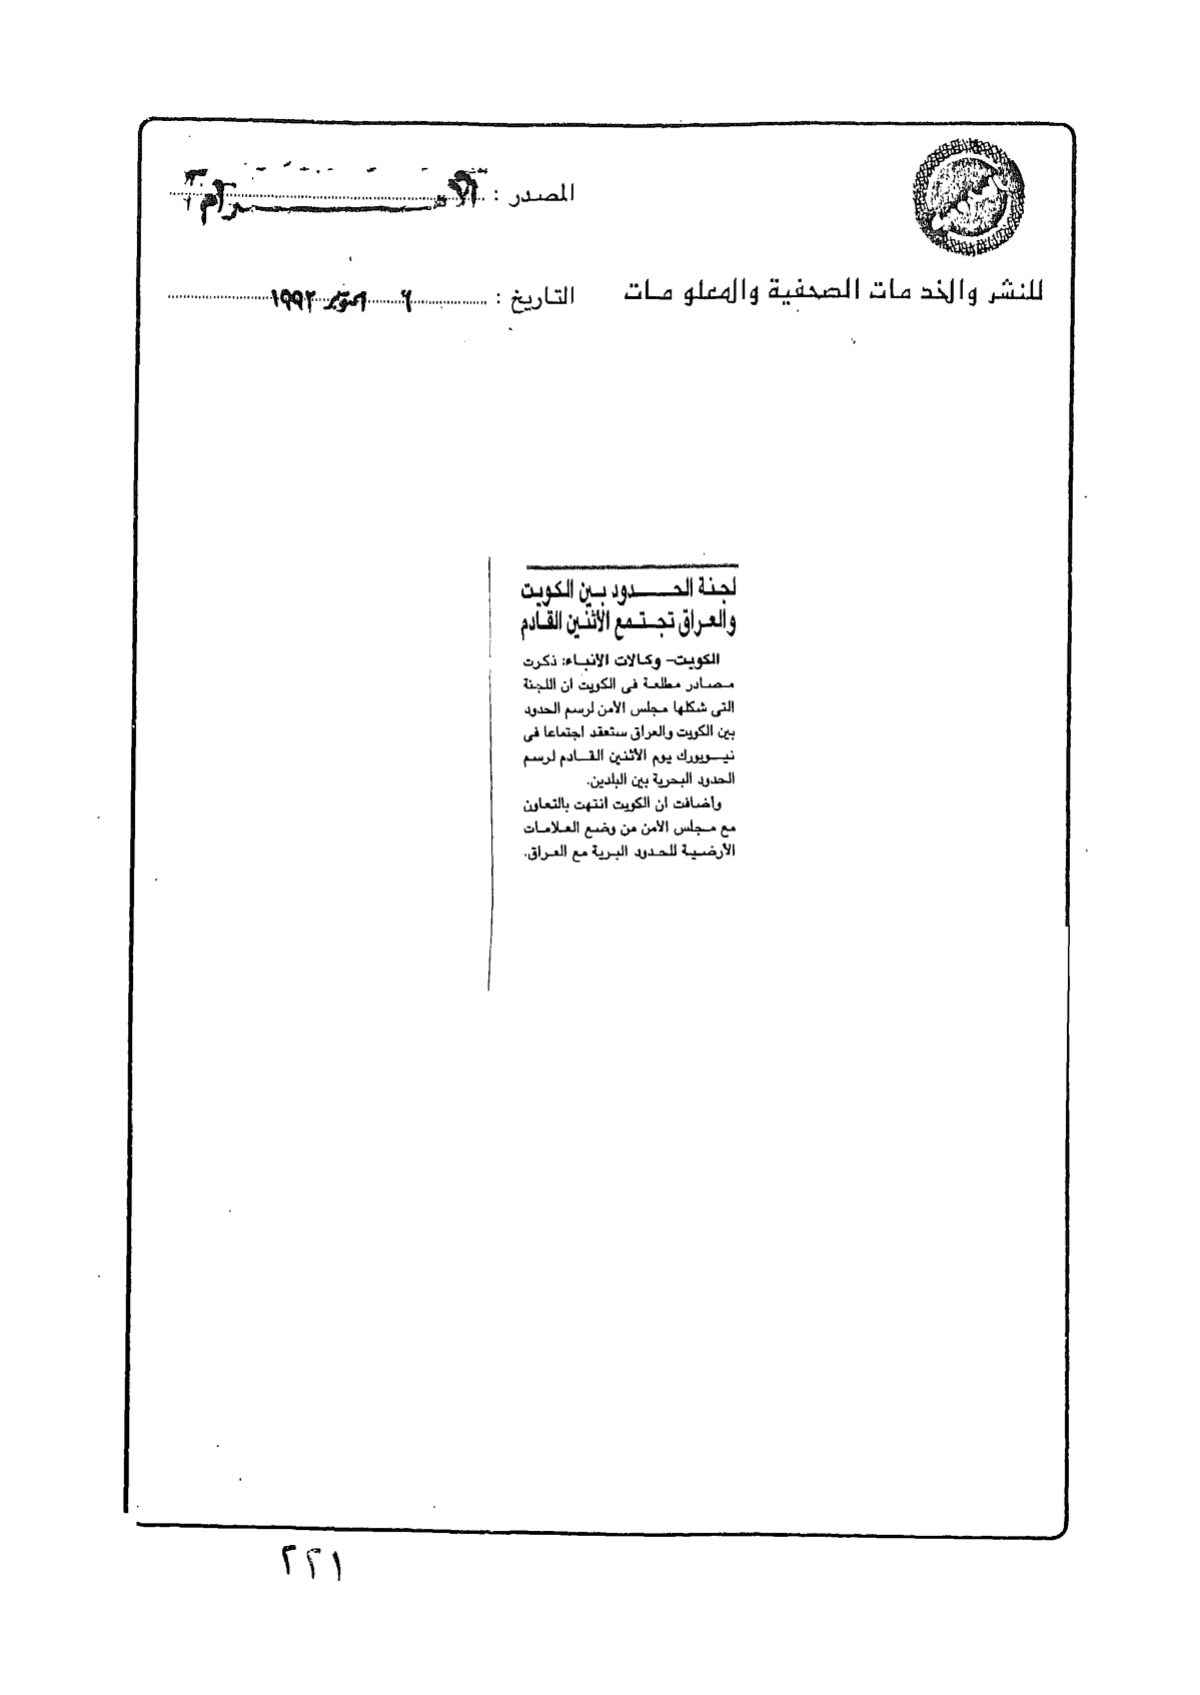 المصدر : الأهـــــرام
للنشر والخدمات الصحفية والمعلومات
التاريخ : ٦ أكتوبر ١٩٩٢
لجنة الحـــــدود بين الكويت
والعراق تجـتـمع الاثنين القادم
الكويت- وكالات الأنباء: ذكرت
مصادر مطلعة فى الكويت ان اللجنة
التى شكلها مجلس الأمن لرسم الحدود
بين الكويت والعراق ستعقد اجتماعا فى
نيويورك يوم الاثنين القادم لرسم
الحدود البحرية بين البلدين.
وأضافت ان الكويت انتهت بالتعاون
مع مجلس الأمن من وضع العلامات
الأرضية للحدود البرية مع العراق.
٢٢١